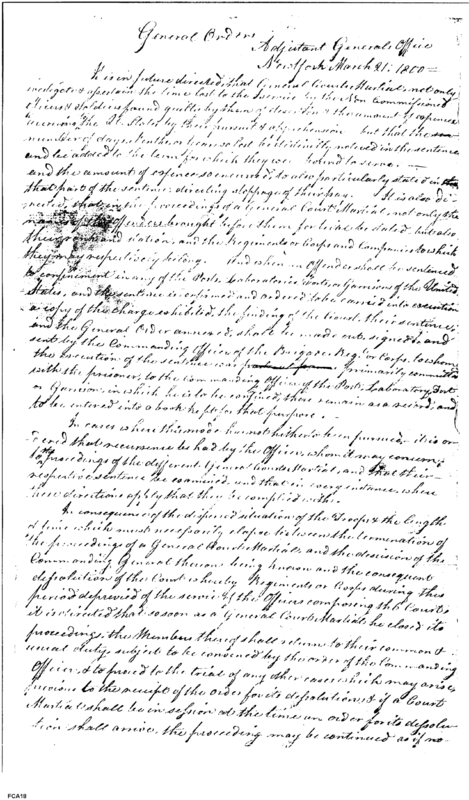 General Orders
Adjutant Generals Office
New York March 21st 1800 =
It is in future directed, that General Courts Martial, not only
investigate & ascertain the time lost to the Service by the Non Commissioned
Officers & Soldiers found guilty by them of desertion & the amount of expence
the U. States by their pursuit & apprehension but that the
number of days, months, or years so lost be distinctly noticed in the sentence
and be added to the term for which they were bound to serve —
and the amount of expences incurred, be also particularly stated in
that part of the sentence directing stoppages of their pay. It is also di-
rected, that in the proceedings of a General Court Martial, not only the
names of the Offenders brought before them for trial be stated, but also
their rank and station, and the Regiments or Corps and Companies to which
they may respectively belong. And when an Offender shall be sentenced
to confinement in any of the Posts, Laboratories, Forts or Garrisons of the United
States, and the sentence is confirmed and ordered to be carried into execution
a copy of the Charge exhibited, the finding of the Court, their sentence,
and the General Order annexed, shall be made out, signed and
sent by the Commanding Officer of the Brigade, Regt. or Corps, to whom
the execution of the sentence was primarily committed
with the prisoner, to the Commanding Officer of the Post, Laboratory, Fort
or Garrison, in which he is to be confined, there remain as a record, and
to be entered into a book kept for that purpose. —
In cases where this mode has not hitherto been pursued it is or-
dered that recurrence be had by the Officers, whom it may concern,
to the proceedings of the different General Courts Martial, and that their
respective sentences be examined and that in every instance, where
these directions apply that they be complied with.
In consequence of the dispersed situation of the Troops & the length
of time which must necessarily elapse between the termination of
the proceedings of a General Court Martial, and the decision of the
Commanding General thereon being known and the consequent
dissolution of the Court whereby Regiments or Corps during this
period deprived of the service of the Officers composing the Courts
it is directed that so soon as a General Court Martial be closed its
proceedings, the Members thereof shall return to their common &
usual duty, subject to be convened by the order of the Commanding
Officer, & to proceed to the trial of any other cases which may arise
previous to the receipt of the order for its dissolution, & if a Court
Martial shall be in session at the time an order for its dissolu-
tion shall arrive, the proceeding may be continued as if no-
FCA18